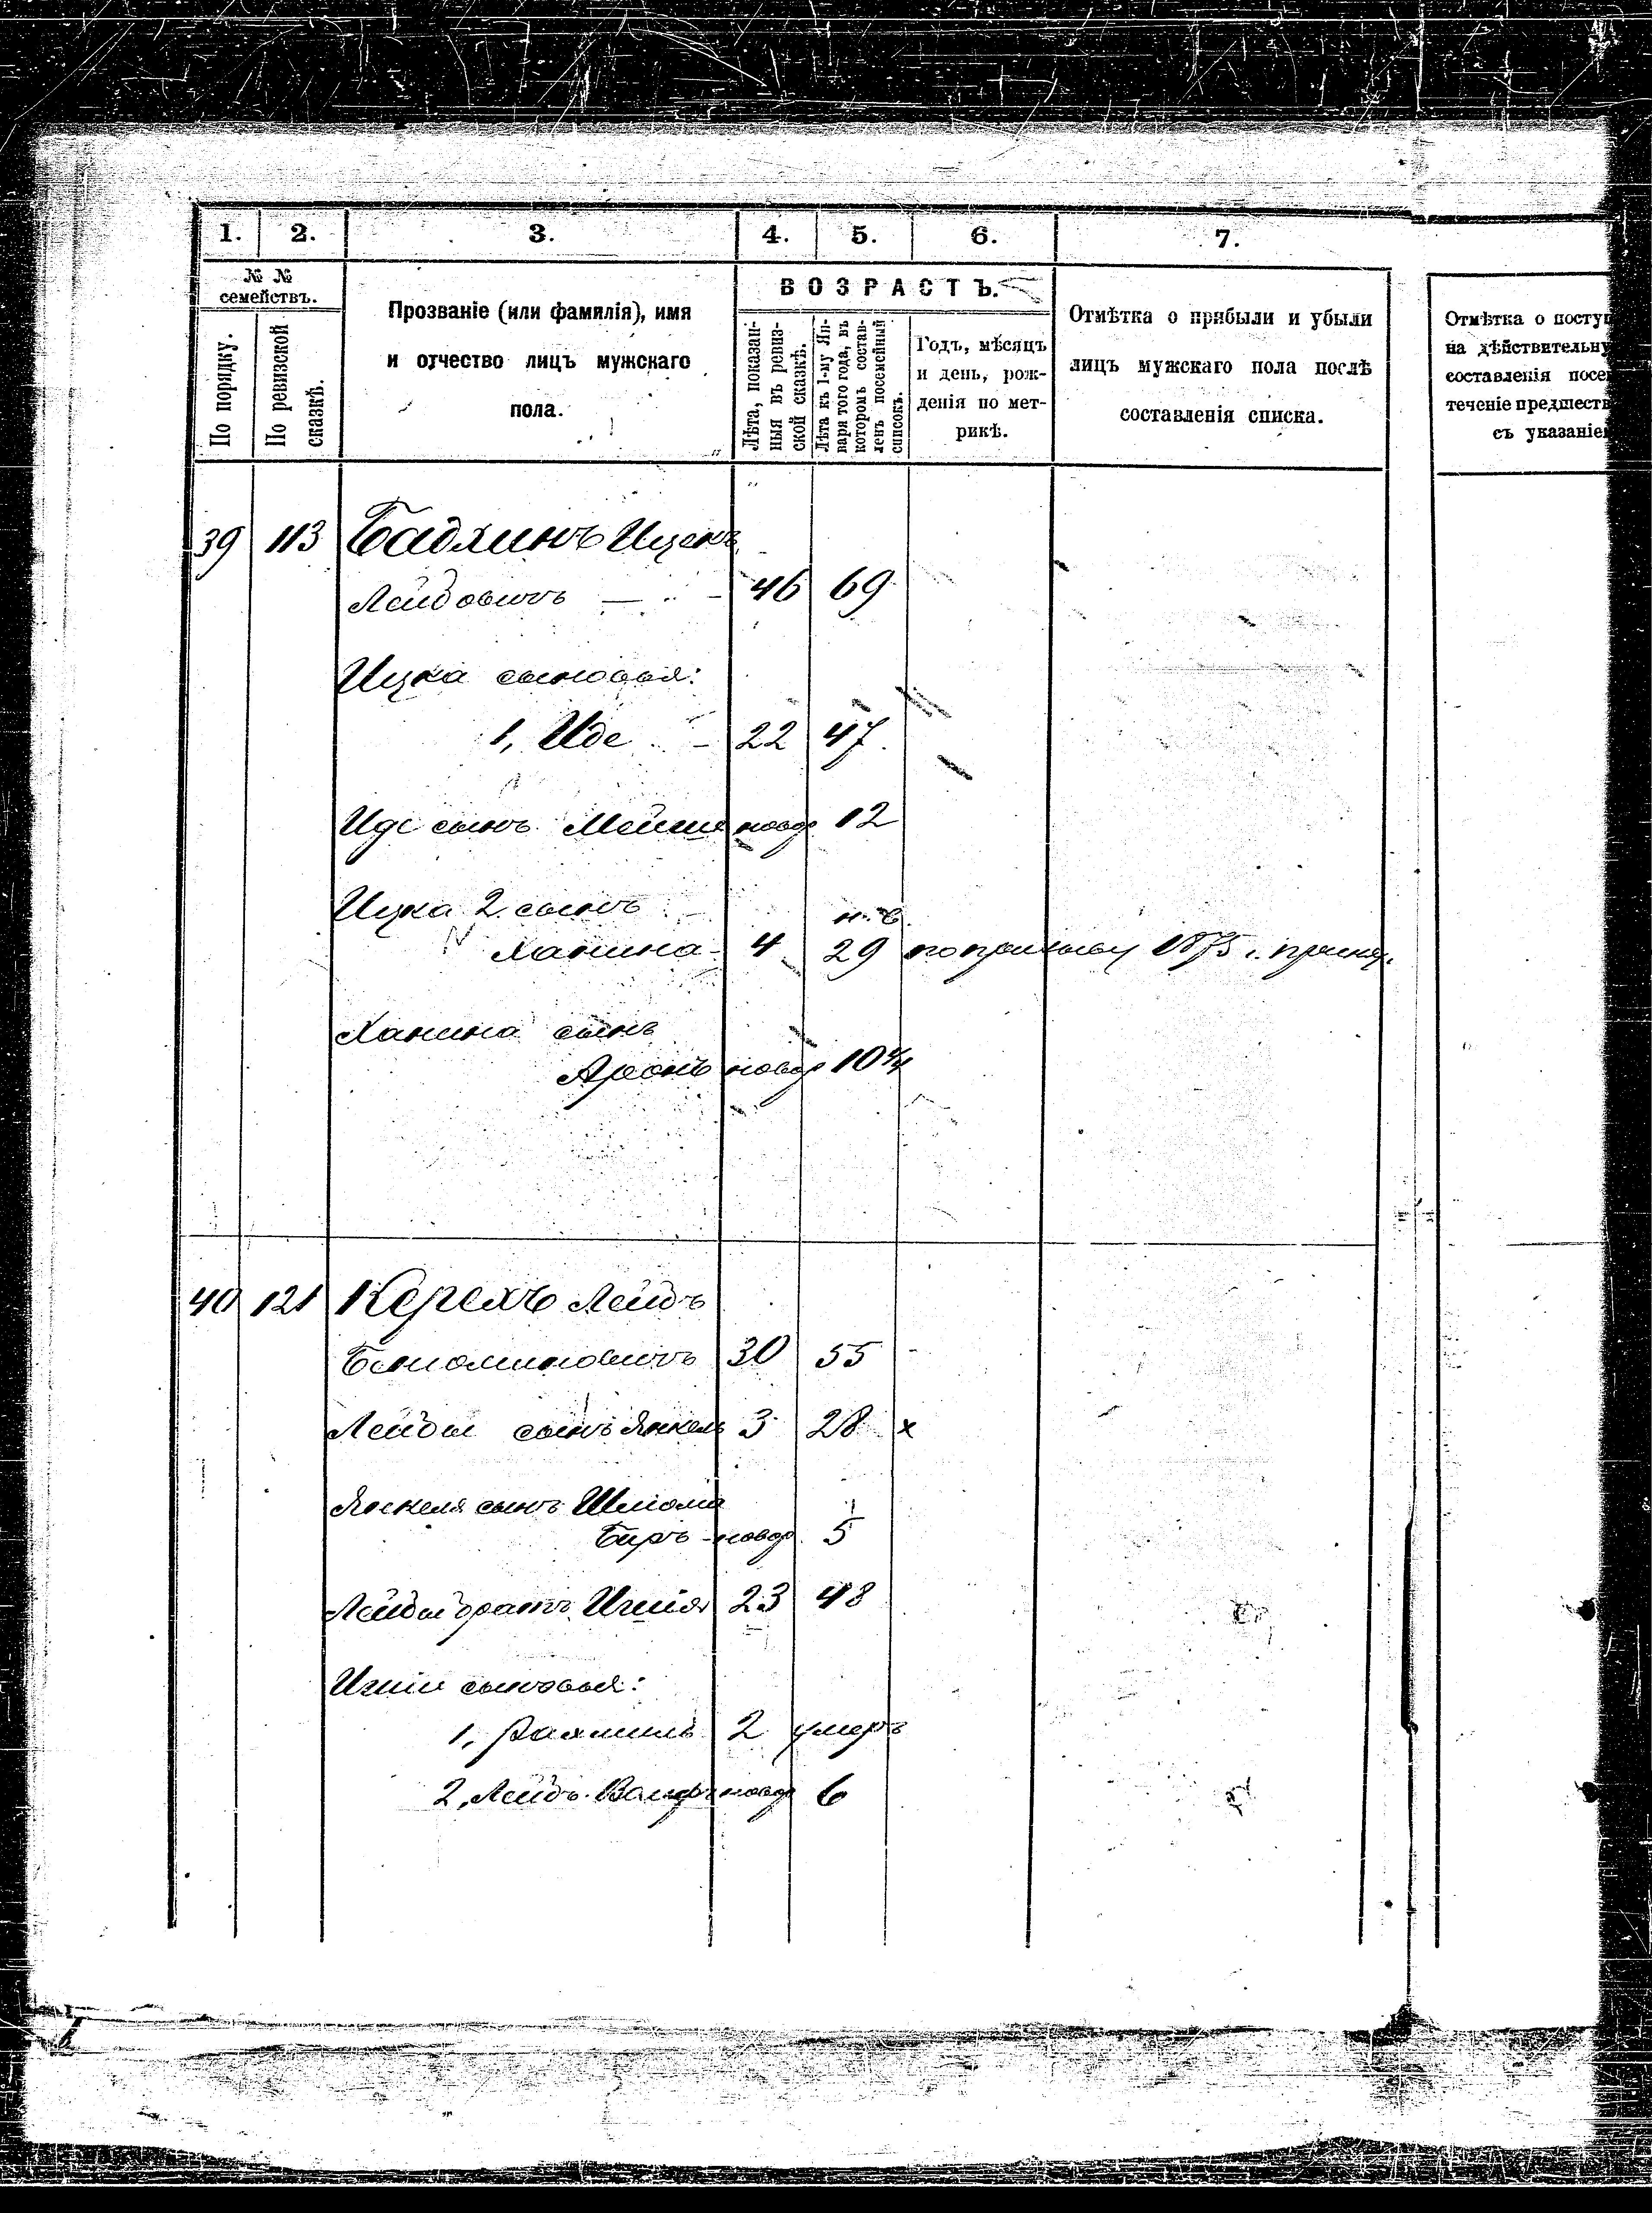 1. 2. 3. 4. 5. 6. 7.
№ №
семействъ.
По порядку.
По ревизской
сказкѣ.
Прозваніе (или фамилія), имя
и отчество лицъ мужскаго
пола.
ВОЗРАСТЪ.
Лѣта, показан-
ныя въ ревиз-
ской сказкѣ.
Лѣта къ 1-му Ян-
варя того года, въ
которомъ состав-
ленъ посемейный
списокъ.
Годъ, мѣсяцъ
и день, рож-
денія по мет-
рикѣ.
Отмѣтка о прибыли и убыли
лицъ мужскаго пола послѣ
составленія списка.
Отмѣтка о посту
на дѣйствительну
составленія посе
теченіе предшеств
съ указаніе
39 113 Бадхинъ Ицекъ
Лейбовичъ 46 69
Ицка сыновья:
1, Иде 22 47
Иде сынъ Мейше новор 12
Ицка 2 сынъ
Ханина 4 29 по призыву 1875 г.
Ханина сынъ
Аронъ новор 10
40 121 Керехъ Лейбъ
Беніоминовичъ 30 55
Лейбы сынъ Янкель 3 28 x
Янкеля сынъ Шліома
Беръ новор 5
Лейбы братъ 23 48
сыновья:
1, Рахмиль 2 умеръ
2, Лейбъ новор 6